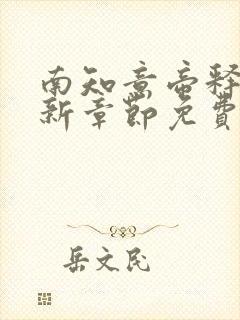 南知意帝释
新章节免费
岳文民